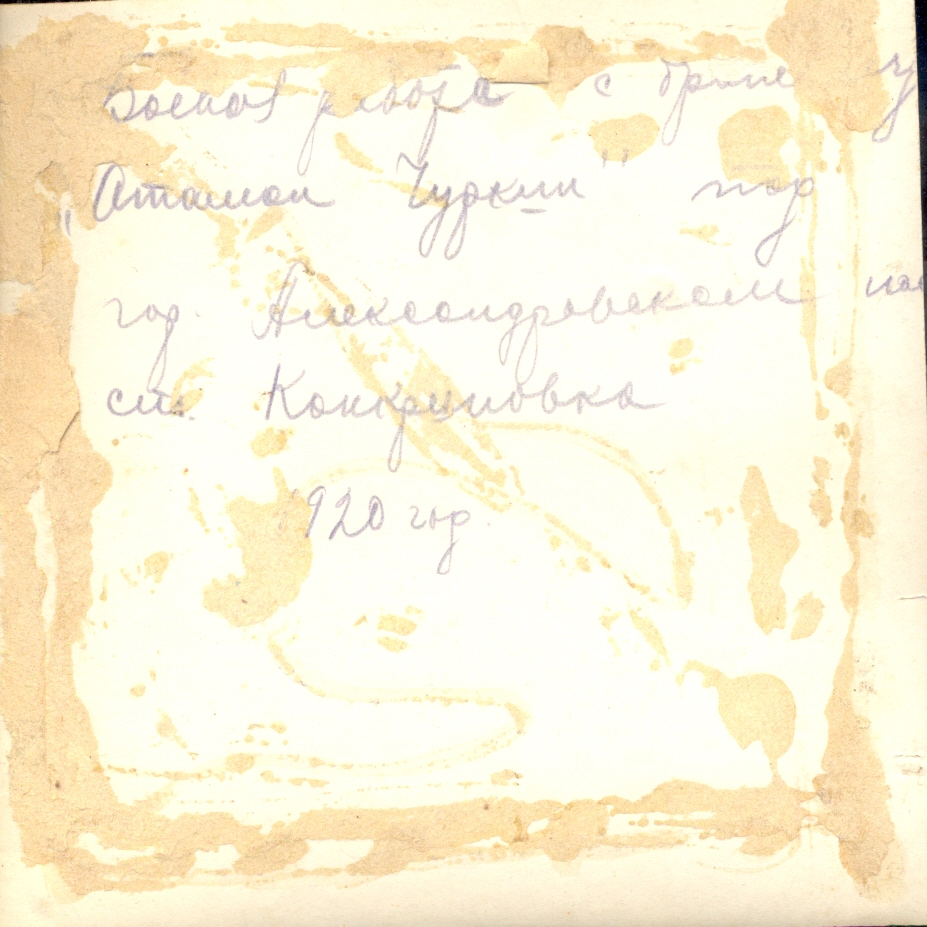 Боевая работа с броне
„Атаман Чуркин" под
гор. Александровском на
ст. Канкриновка
1920 год.